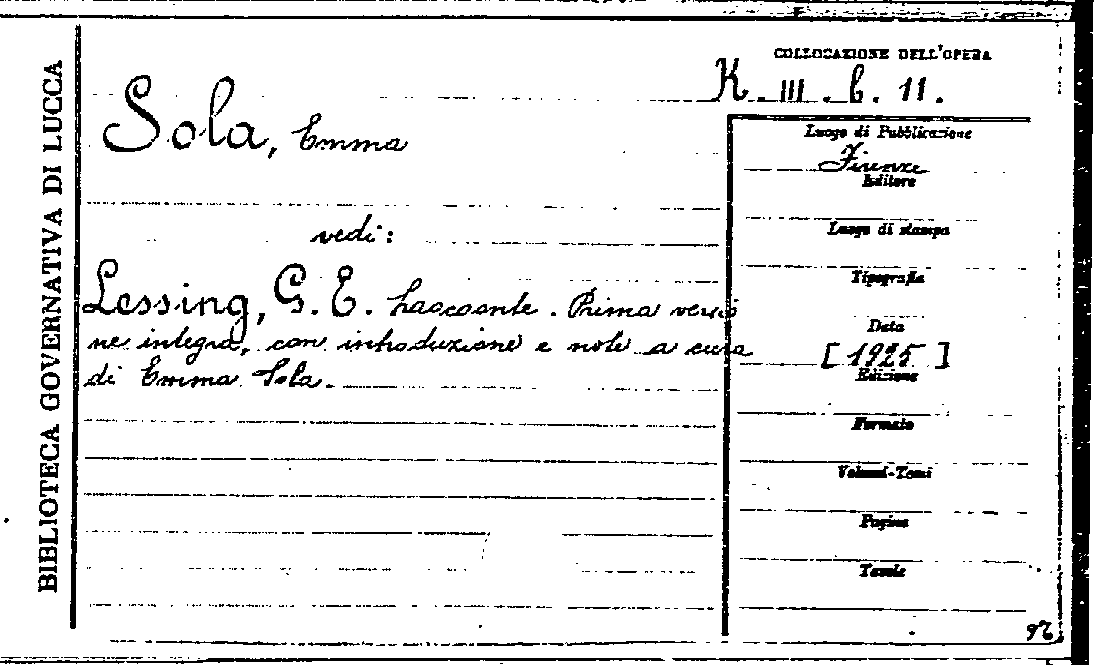 BIBLIOTECA GOVERNATIVA DI LUCCA
COLLOCAZIONE DELL'OPERA
K. III. b. 11.
Sola, Emma
vedi:
Lessing, G. E. Laocoonte. Prima versio
ne integra, con introduzione e note a cura
di Emma Sola.
Luogo di Pubblicazione
Firenze
Editore
Luogo di stampa
Tipografia
Data
[1925]
Edizione
Formato
Volumi-Tomi
Pagine
Tavole